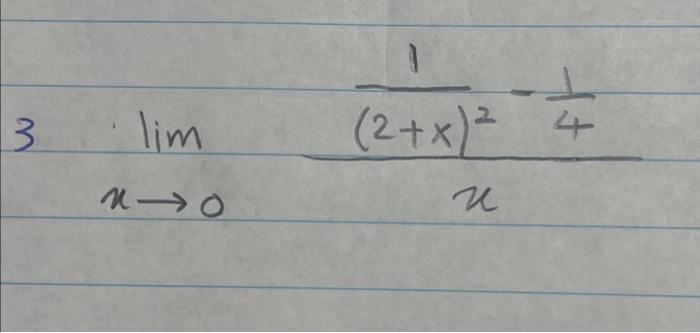 3 lim x→0 (1/(2+x)² - 1/4)/x